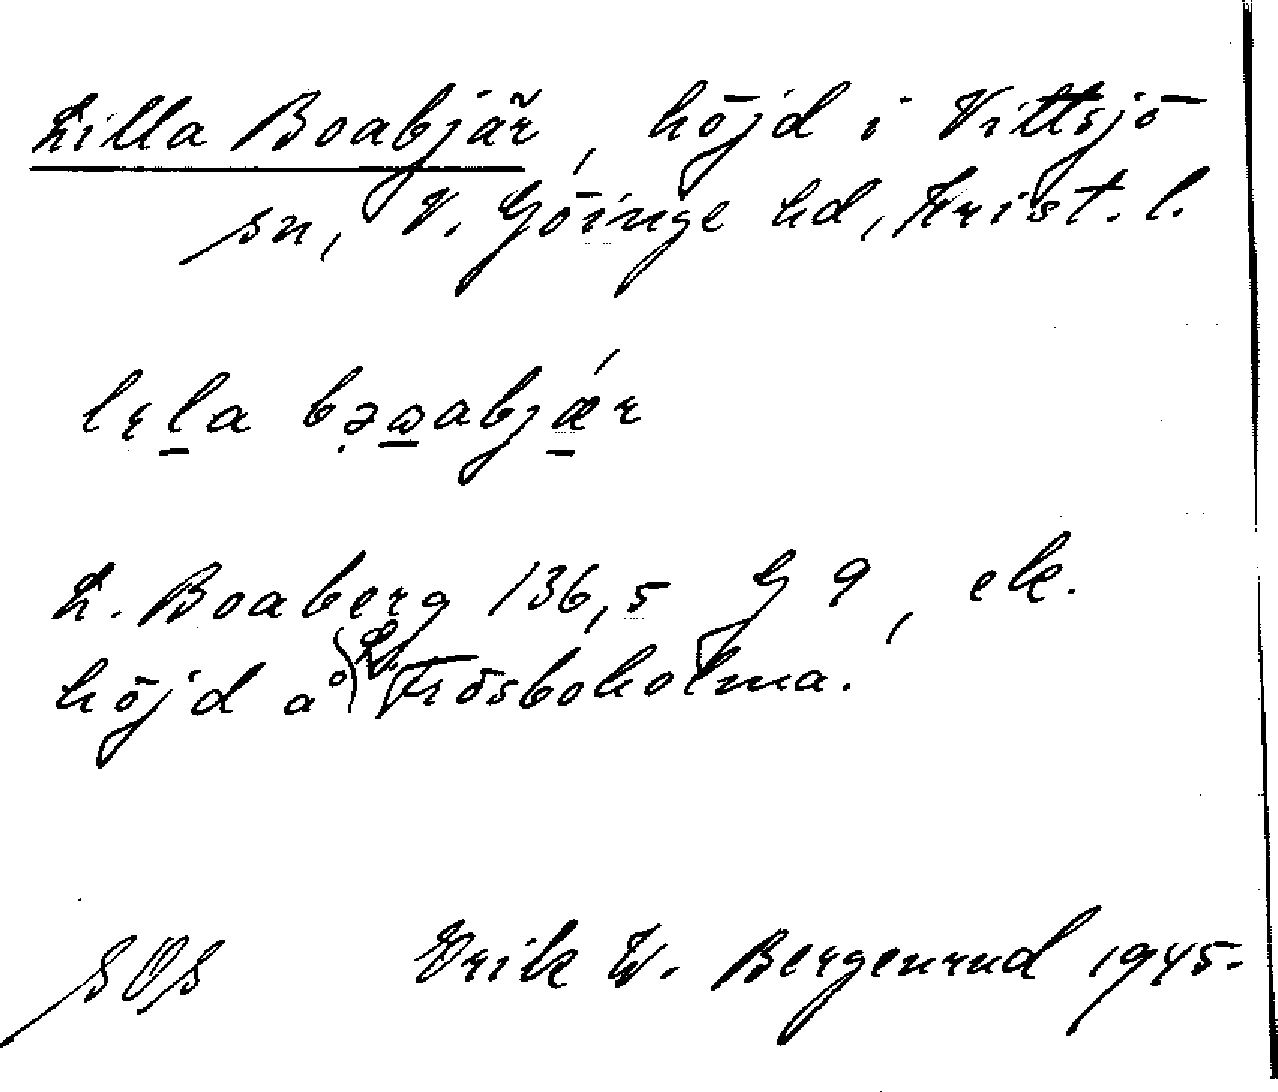 Lilla Boabjär, höjd i Vittsjö
sn, V. Göinge hd, Krist. l.
lęla bəωabjǽr
L. Boaberg 136,5 G 9, ek.
höjd å L. Frösboholma.
SOS Erik W. Bergenrud 1945.